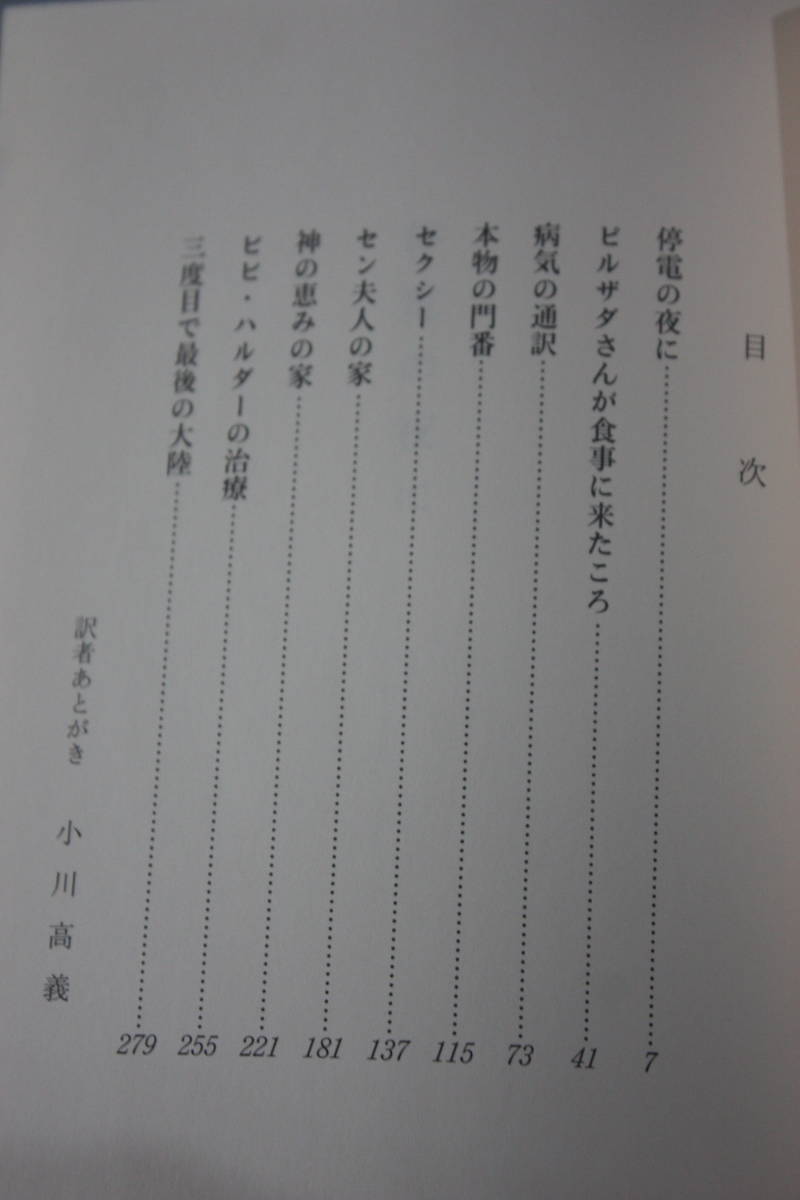 目次
停電の夜に……7
ピルザダさんが食事に来たころ……41
病気の通訳……73
本物の門番……115
セクシー……137
セン夫人の家……181
神の恵みの家……221
ビビ・ハルダーの治療……255
三度目で最後の大陸……279
訳者あとがき 小川高義